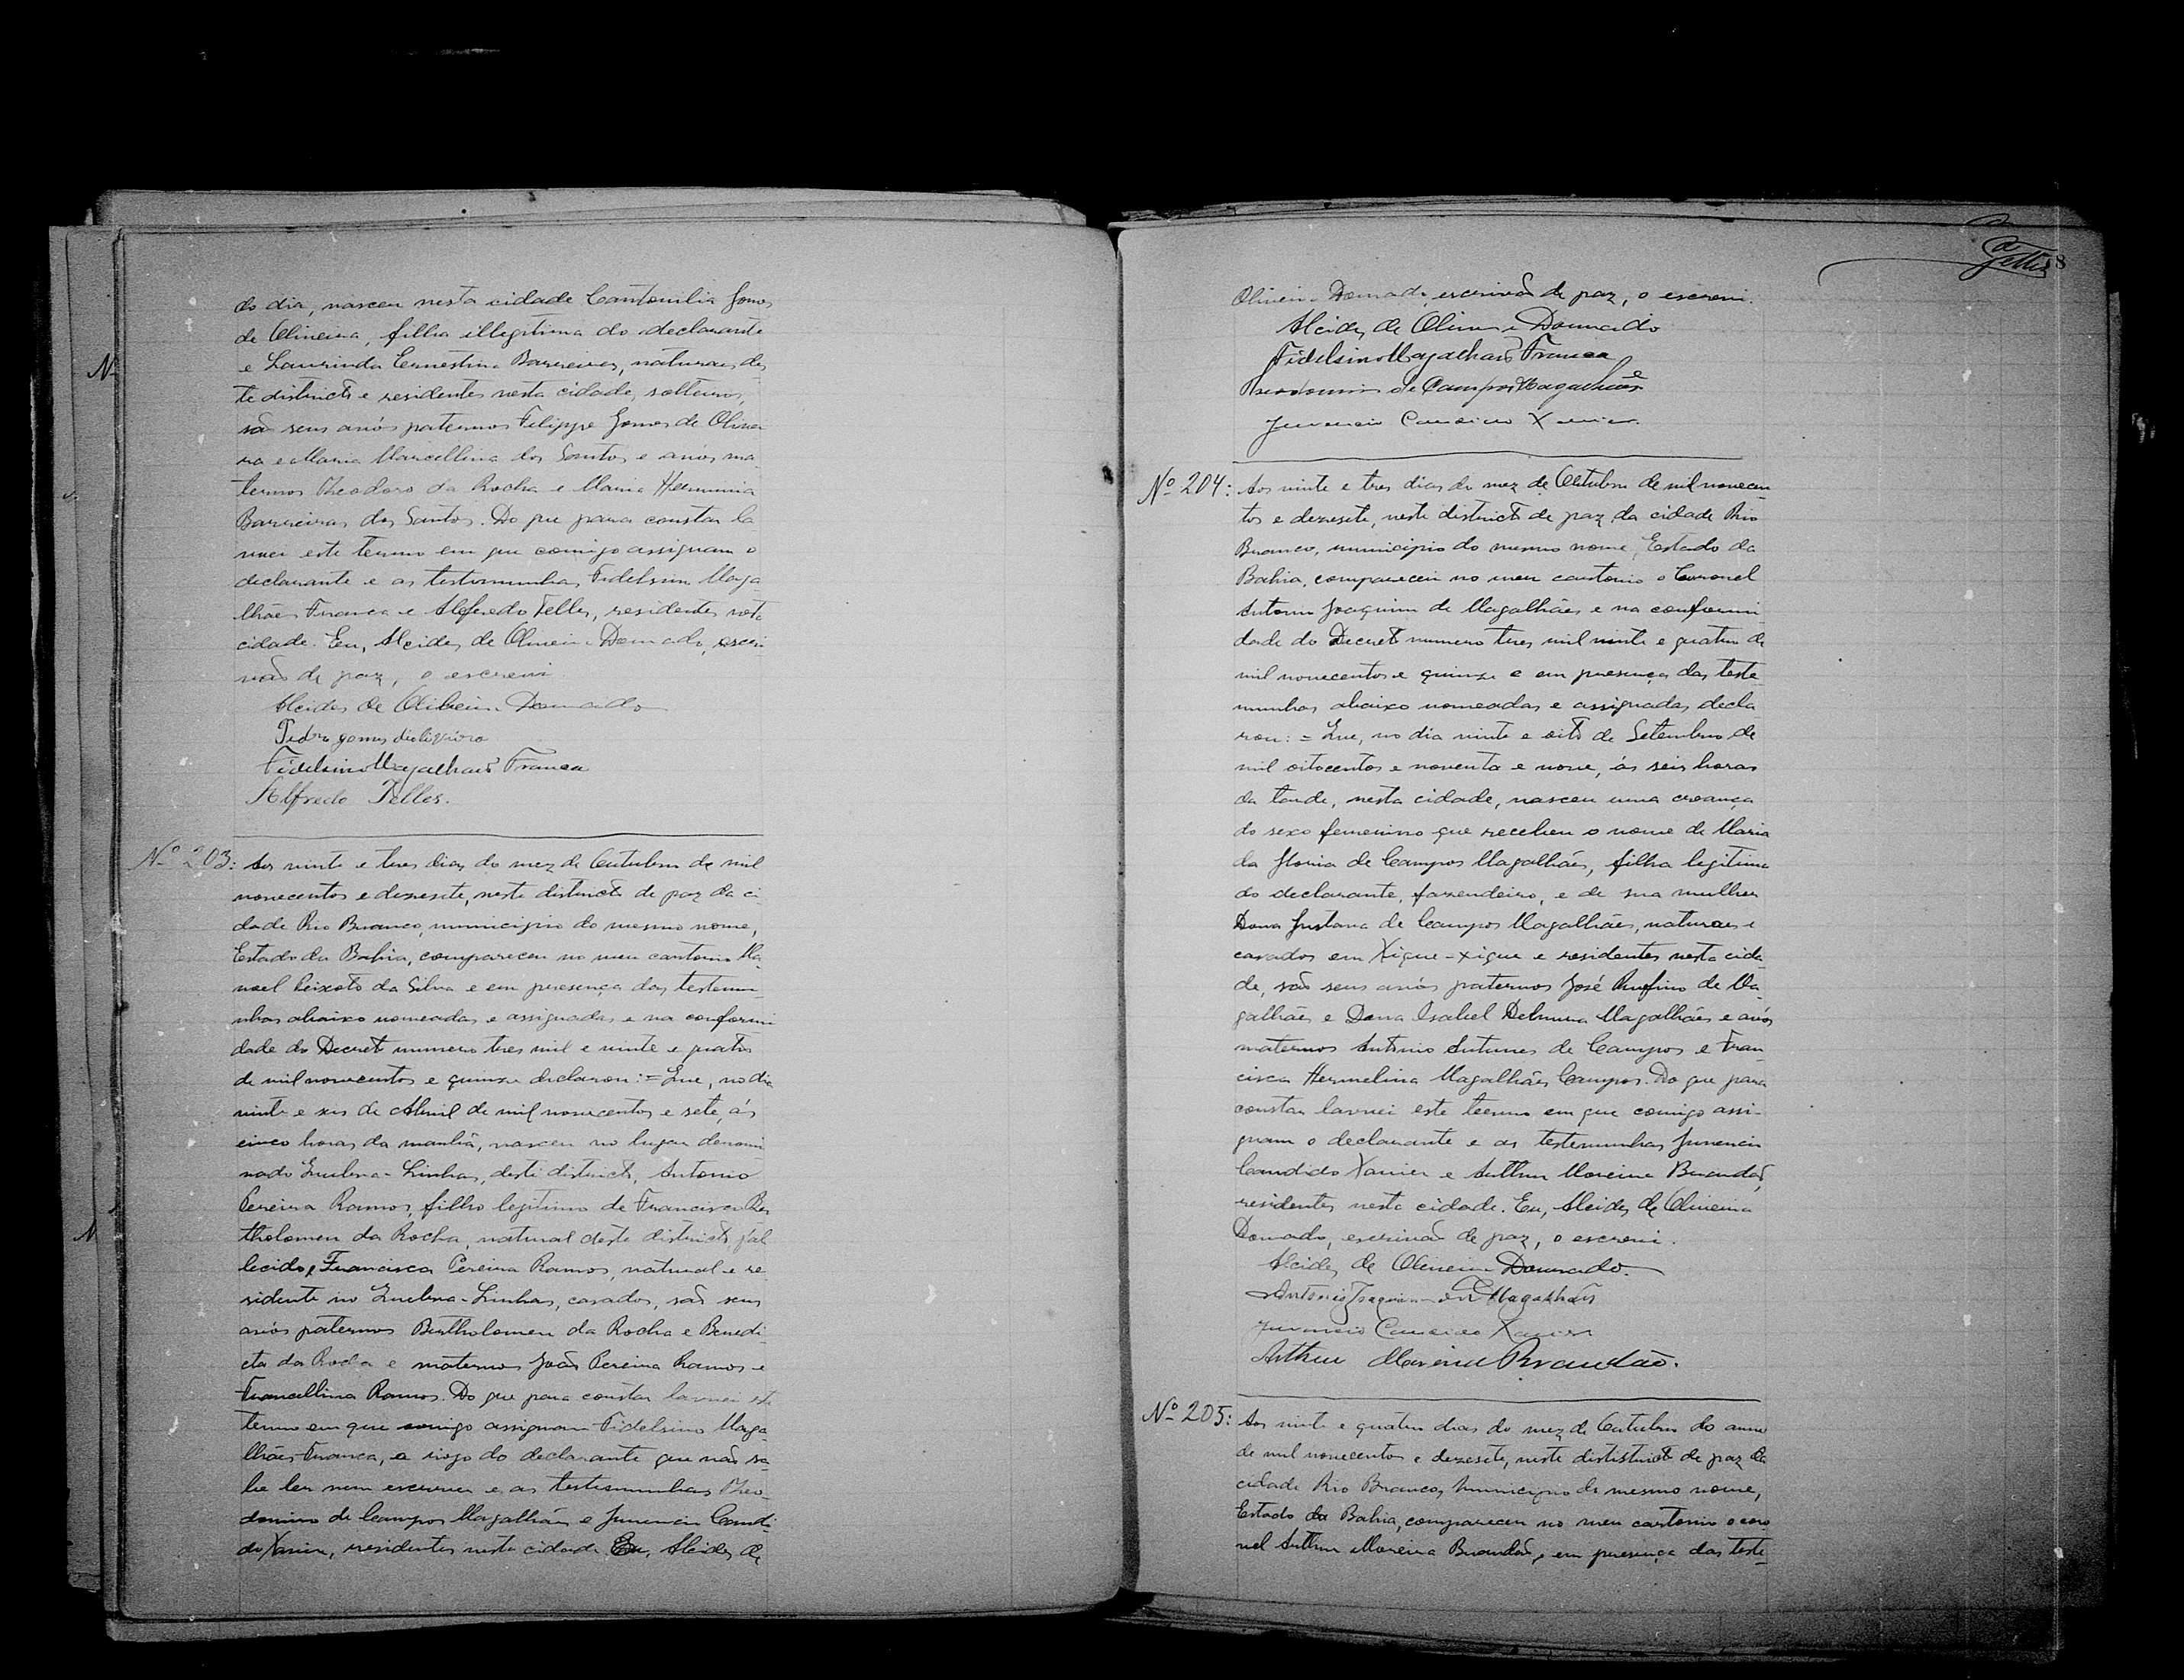 do dia, nasceu nesta cidade Cantonilia Gomes
de Oliveira, filha illegitima do declarante
e Laurinda Ernestina Barreiras, naturaes des
te districto e residentes nesta cidade, solteiros,
são seus avós paternos Felippe Gomes de Olivei
ra e Maria Marcellina dos Santos e avós ma
ternos Theodoro da Rocha e Maria Herminia
Barreiras dos Santos. Do que para constar la
vrei este termo em que comigo assignam o
declarante e as testemunhas Fidelsino Maga
lhães Franca e Alfredo Telles, residentes nesta
cidade. Eu, Alcides de Oliveira Dourado, escri
vão de paz, o escrevi
Alcides de Oliveira Dourado
Pedro gomes
Fidelsino Magalhães Franca
Alfredo Telles.
Nº 203: Aos vinte e tres dias do mez de Outubro de mil
novecentos e dezesete, neste districto de paz da ci
dade Rio Branco, municipio do mesmo nome,
Estado da Bahia, compareceu no meu cartorio Ma
noel Peixoto da Silva e em presença das testemu
nhas abaixo nomeadas e assignadas e na conformi
dade do Decreto numero tres mil e vinte e quatro
de mil novecentos e quinze declarou:= Que, no dia
vinte e seis de Abril de mil novecentos e sete, ás
cinco horas da manhã, nasceu no lugar denomi
nado Quebra-Linhas, deste districto, Antonio
Pereira Ramos, filho legitimo de Francisco Bar
tholomeu da Rocha, natural deste districto, fal
lecido e Francisca Pereira Ramos, natural e re
sidente no Quebra-Linhas, casados, são seus
avós paternos Bertholomeu da Rocha e Benedi
cta da Rocha e maternos João Pereira Ramos e
Francellina Ramos. Do que para constar lavrei este
termo em que comigo assignam Fidelsino Maga
lhães Franca, a rogo do declarante que não sa
be ler nem escrever e as testemunhas Theo
domiro de Campos Magalhães e Juvencio Candi
do Xavier, residentes nesta cidade. Eu, Alcides de
Oliveira Dourado, escrivão de paz, o escrevi.
Alcides de Oliveira Dourado
Fidelsino Magalhães Franca
de Campos Magalhães
Juvencio Candido Xavier
Nº 204: Aos vinte e tres dias do mez de Outubro de mil novecen
tos e dezesete, neste districto de paz da cidade Rio
Branco, municipio do mesmo nome, Estado da
Bahia, compareceu no meu cartorio o Coronel
Antonio Joaquim de Magalhães e na conformi
dade do Decreto numero tres mil vinte e quatro de
mil novecentos e quinze e em presença das teste
munhas abaixo nomeadas e assignadas decla
rou:= Que, no dia vinte e oito de Setembro de
mil oitocentos e noventa e nove, ás seis horas
da tarde, nesta cidade, nasceu uma creança
do sexo femenino que recebeu o nome de Maria
da Gloria de Campos Magalhães, filha legitima
do declarante, fazendeiro, e de sua mulher
Dona Justana de Campos Magalhães, naturaes e
casados em Xique-xique e residentes nesta cida
de, são seus avós paternos José Rufino de Ma
galhães e Dona Izabel Magalhães e avós
maternos Antonio Antunes de Campos e Fran
cisca Hermelina Magalhães Campos. Do que para
constar lavrei este termo em que comigo assi-
gnam o declarante e as testemunhas Juvencio
Candido Xavier e Arthur Moreira Brandão,
residentes nesta cidade. Eu, Alcides de Oliveira
Dourado, escrivão de paz, o escrevi.
Alcides de Oliveira Dourado.
Antonio Joaquim de Magalhães
Juvencio Candido Xavier
Arthur Moreira Brandão.
Nº 205: Aos vinte e quatro dias do mez de Outubro do anno
de mil novecentos e dezesete, neste dististricto de paz da
cidade Rio Branco, municipio do mesmo nome,
Estado da Bahia, compareceu no meu cartorio o coro
nel Arthur Moreira Brandão, e em presença das teste-